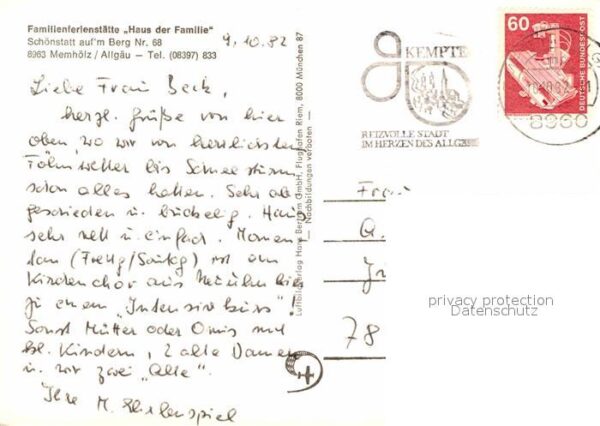 Familienferienstätte „Haus der Familie"
Schönstatt auf'm Berg Nr. 68
8963 Memhölz / Allgäu – Tel. (08397) 833
9.10.82
Liebe Frau Beck,
herzl. Grüße von hier
oben, wo wir von herrlichstem
Föhnwetter bis Schneesturm
schon alles hatten. Sehr ab-
geschieden u. buckelig. Haus
sehr nett u. einfach. Momen-
tan (Freitg/Sonntg) ist ein
Kinderchor aus Neuulm hier
zu einem „Intensivkurs"!
Sonst Mütter oder Omis mit
kl. Kindern, 2 alte Damen
u. wir zwei „Alte".
Ihre M.
Luftbildverlag Hans Bertram GmbH, Flughafen Riem, 8000 München 87
– Nachbildungen verboten –
KEMPTE
REIZVOLLE STADT
IM HERZEN DES ALLGÄ
60
DEUTSCHE BUNDESPOST
8960
Frau
78
privacy protection
Datenschutz